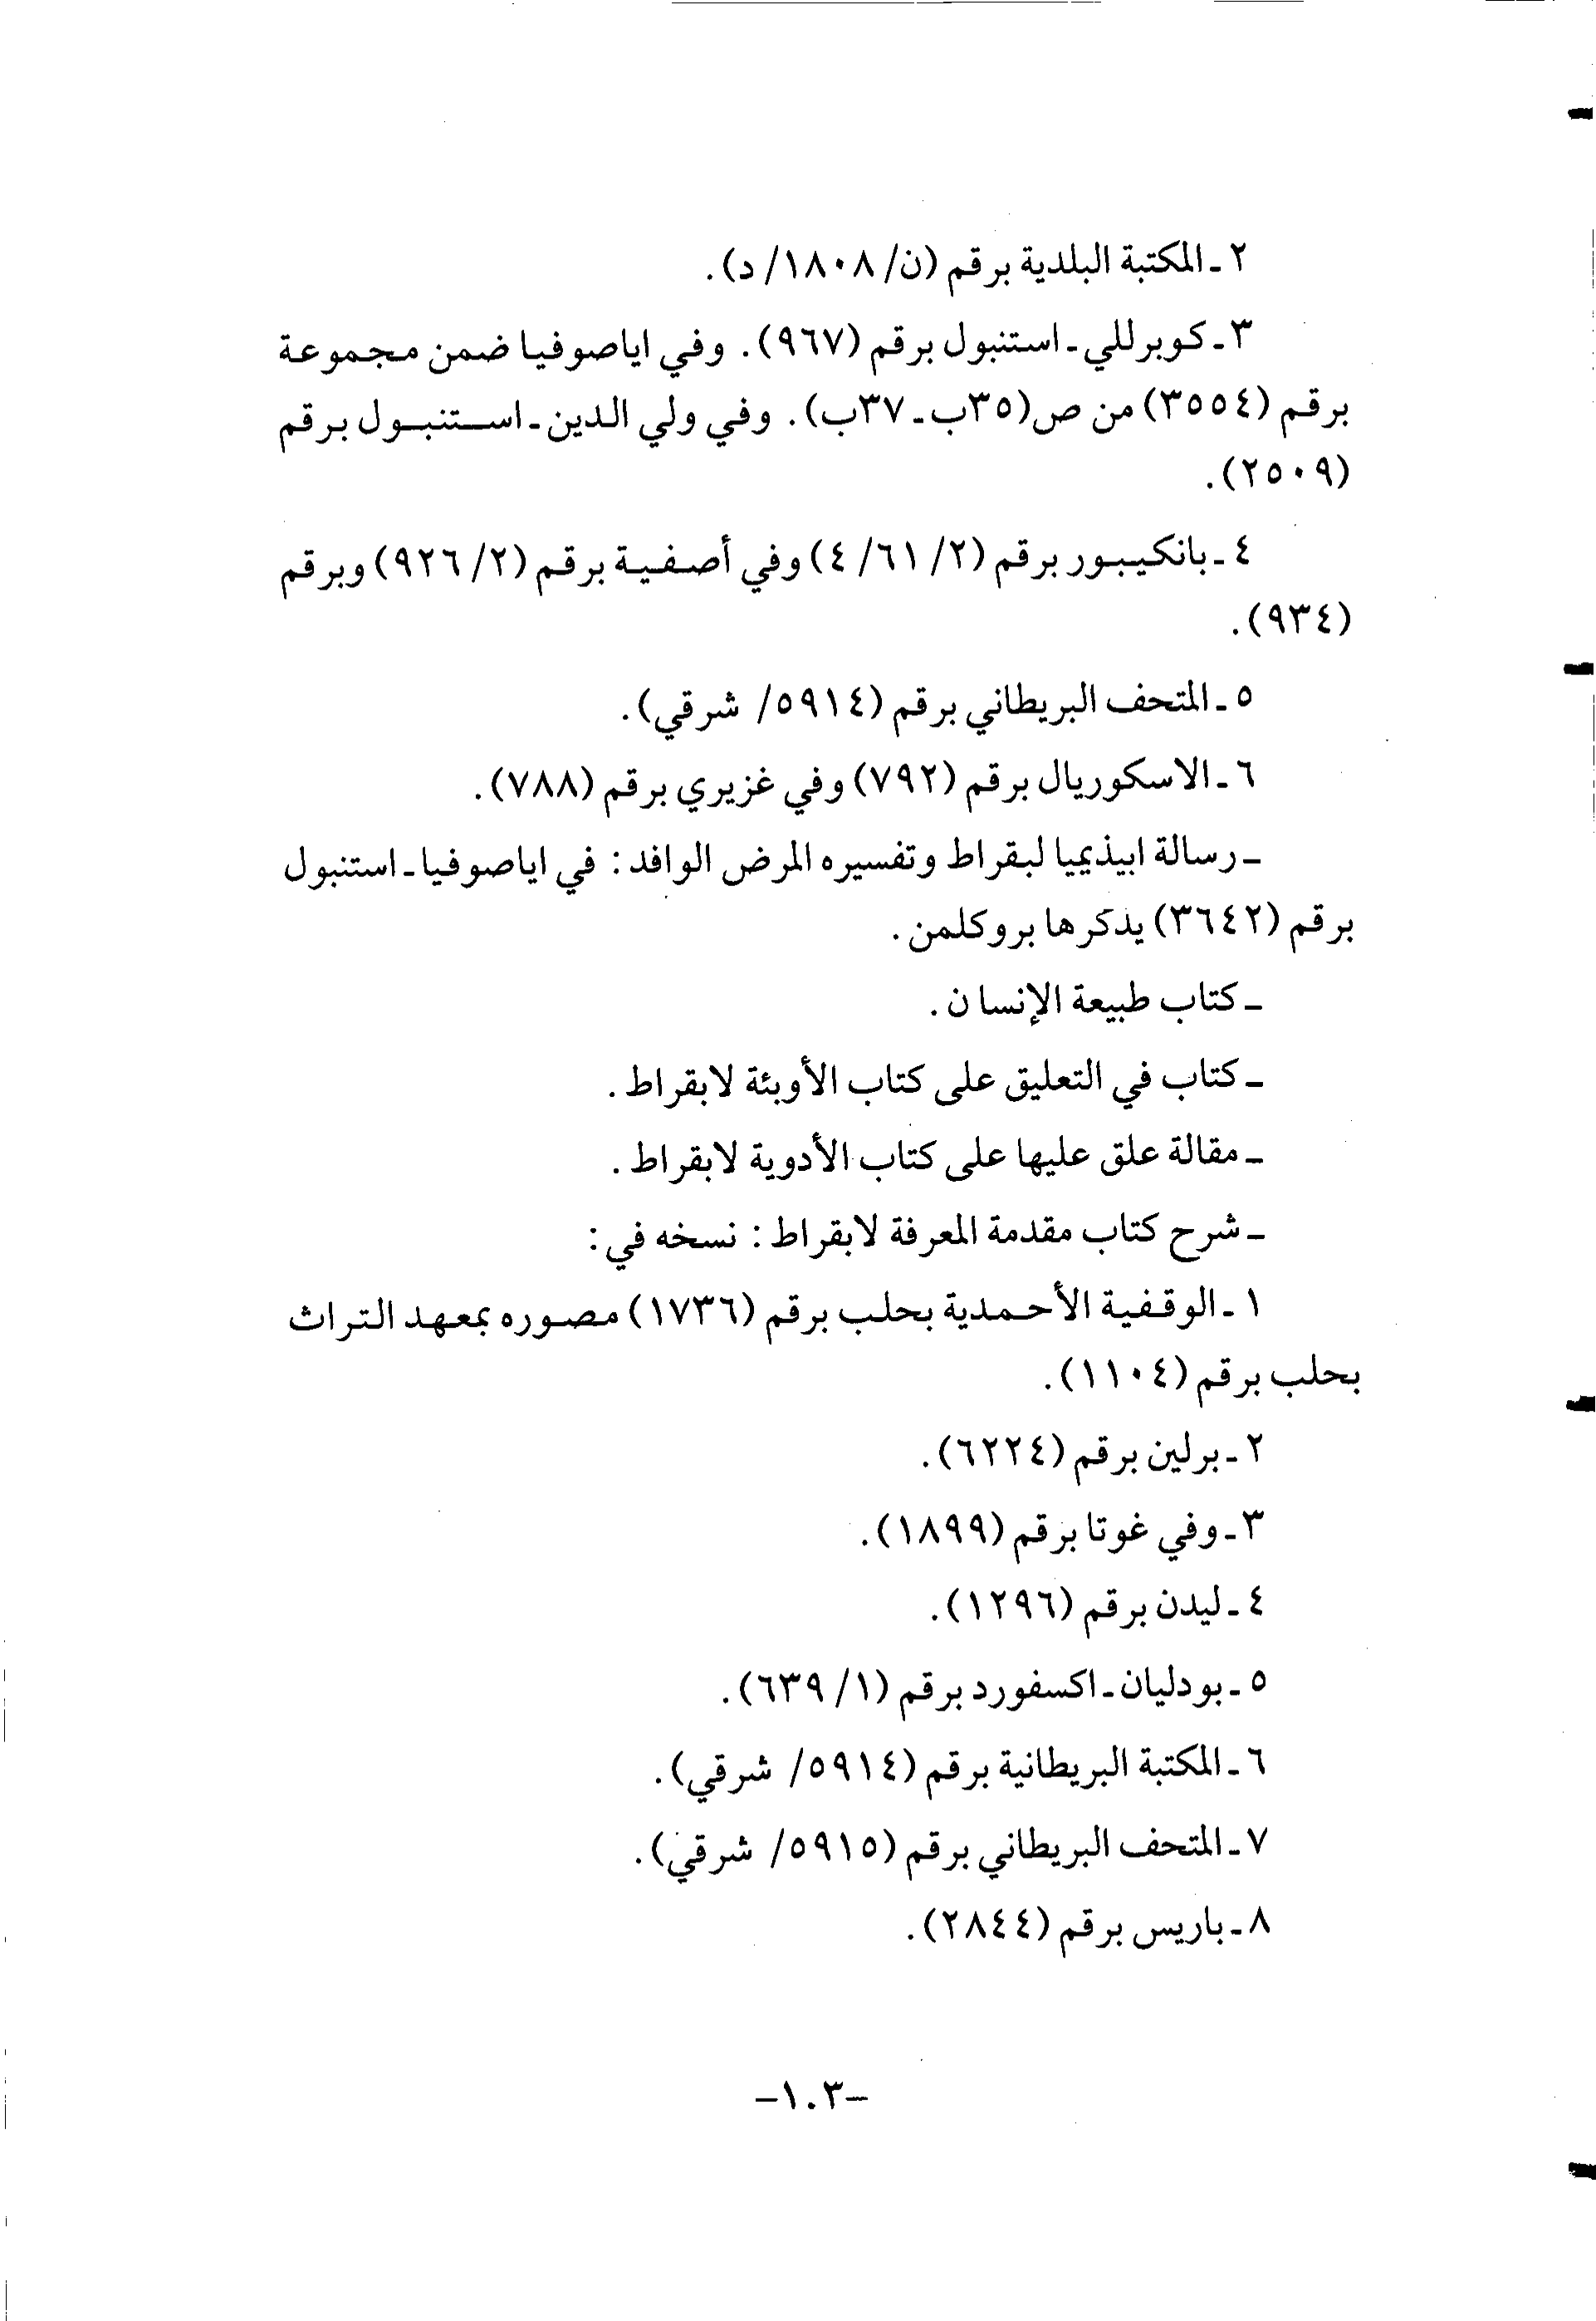 ٢ ـ المكتبة البلدية برقم (ن/ ١٨٠٨/ د).
٣ ـ كوبرللي ـ استنبول برقم (٩٦٧). وفي اياصوفيا ضمن مجموعة
برقم (٣٥٥٤) من ص(٣٥ب ـ ٣٧ب). وفي ولي الدين ـ استنبول برقم
(٢٥٠٩).
٤ ـ بانكيبور برقم (٢/ ٦١/ ٤) وفي أصفية برقم (٢/ ٩٢٦) وبرقم
(٩٣٤).
٥ ـ المتحف البريطاني برقم (٥٩١٤/ شرقي).
٦ ـ الاسكوريال برقم (٧٩٢) وفي غزيري برقم (٧٨٨).
ـ رسالة ابيذيميا لبقراط وتفسيره المرض الوافد: في اياصوفيا ـ استنبول
برقم (٣٦٤٢) يذكرها بروكلمن.
ـ كتاب طبيعة الإنسان.
ـ كتاب في التعليق على كتاب الأوبئة لابقراط.
ـ مقالة علق عليها على كتاب الأدوية لابقراط.
ـ شرح كتاب مقدمة المعرفة لابقراط: نسخه في:
١ ـ الوقفية الأحمدية بحلب برقم (١٧٣٦) مصوره بمعهد التراث
بحلب برقم (١١٠٤).
٢ ـ برلين برقم (٦٢٢٤).
٣ ـ وفي غوتا برقم (١٨٩٩).
٤ ـ ليدن برقم (١٢٩٦).
٥ ـ بودليان ـ اكسفورد برقم (١/ ٦٣٩).
٦ ـ المكتبة البريطانية برقم (٥٩١٤/ شرقي).
٧ ـ المتحف البريطاني برقم (٥٩١٥/ شرقي).
٨ ـ باريس برقم (٢٨٤٤).
-١٠٣-